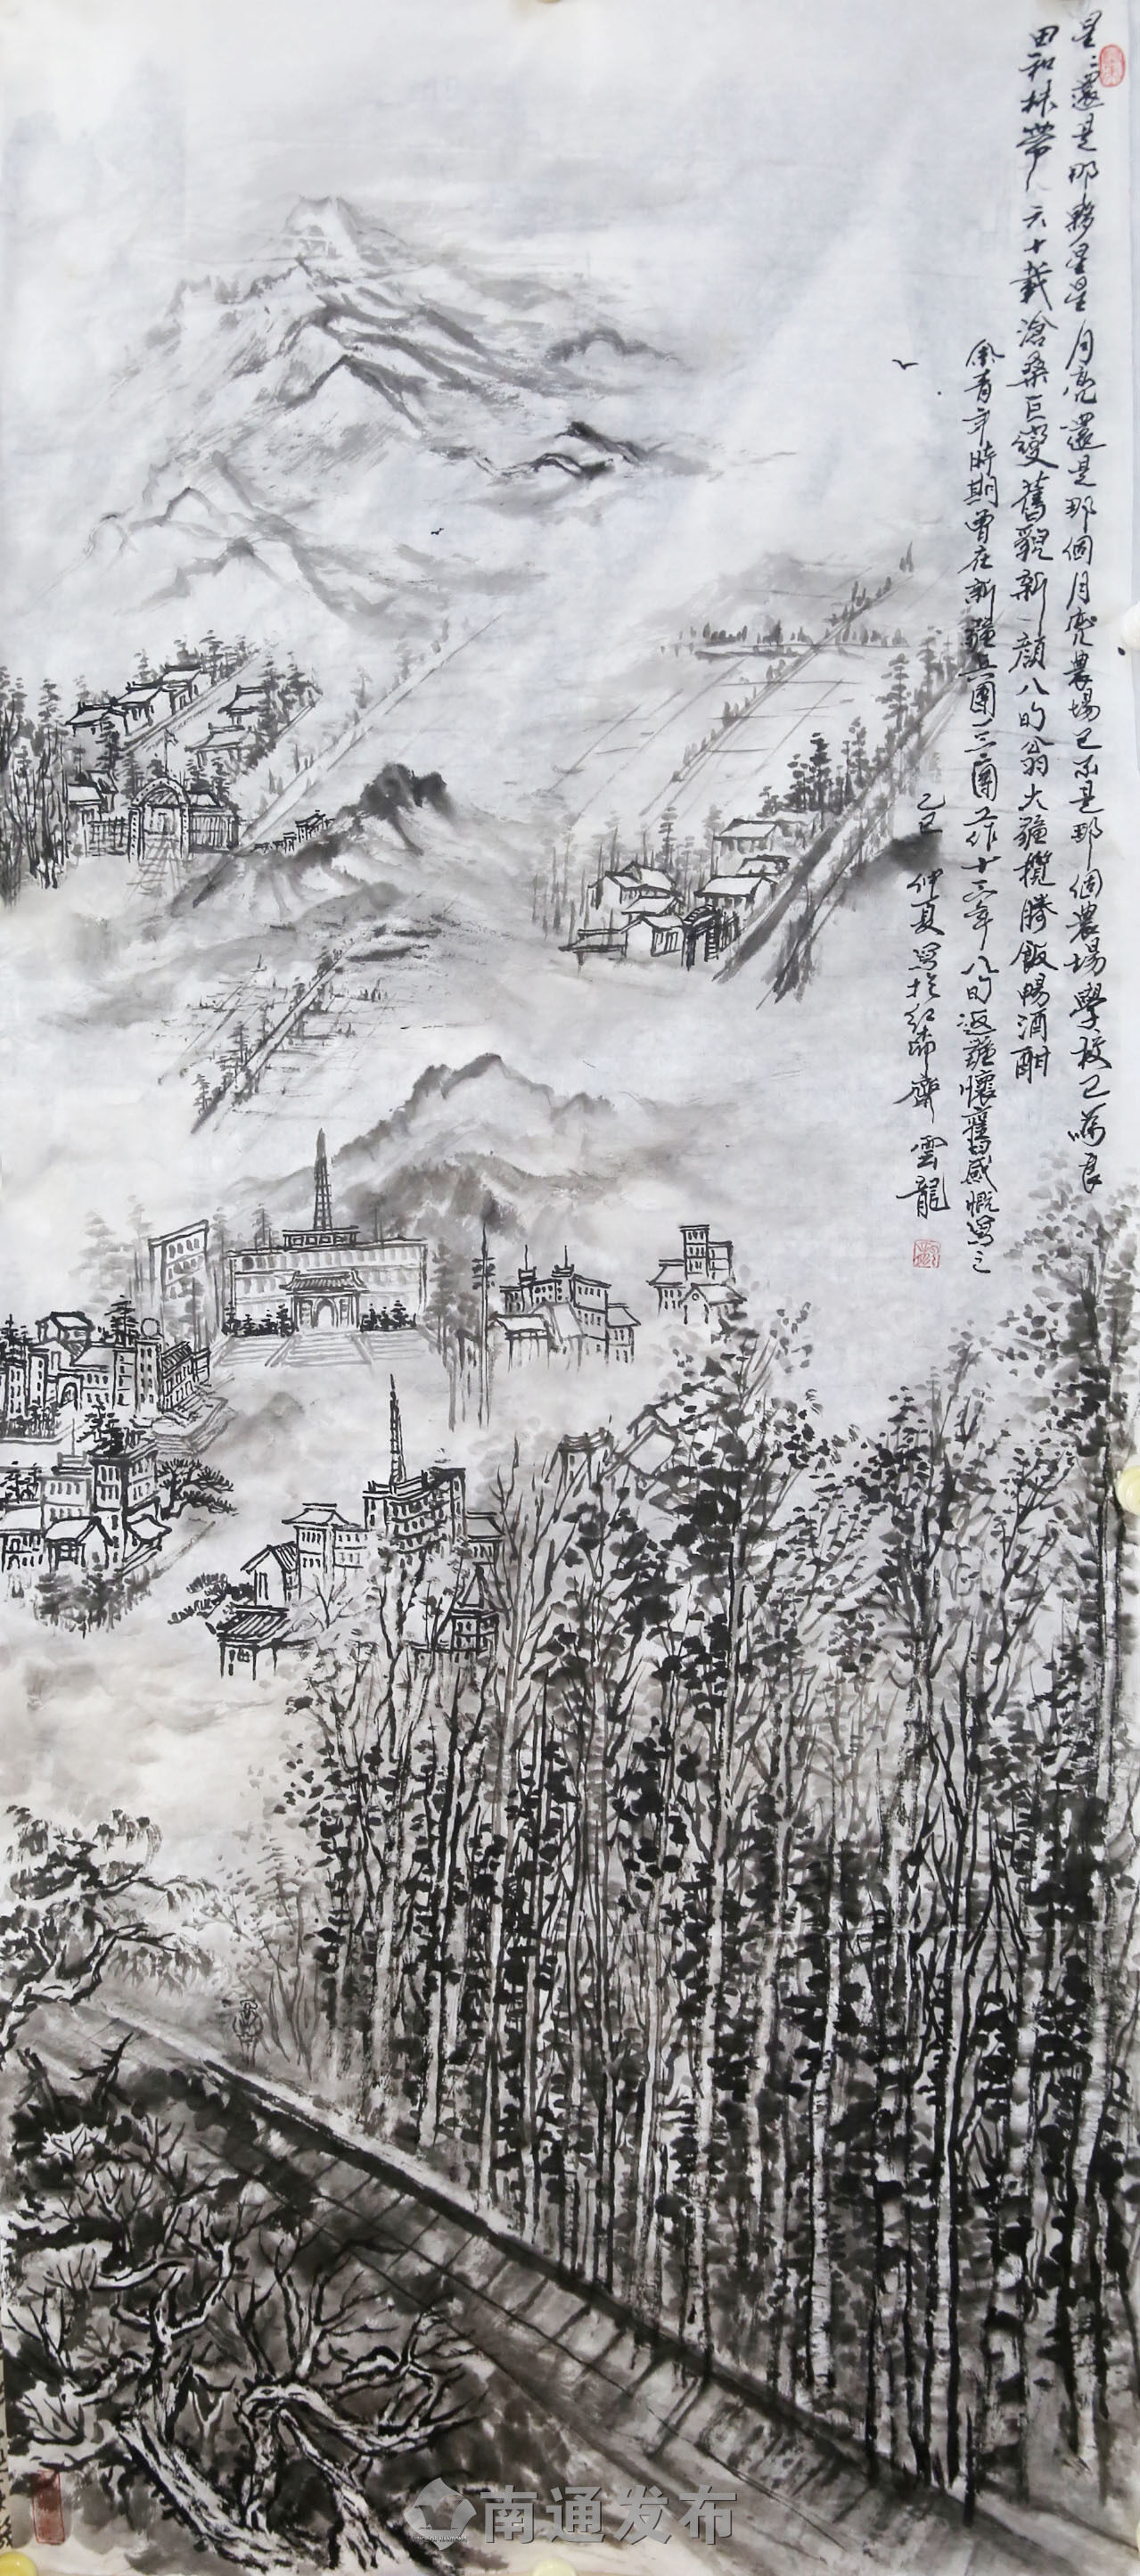 星々還是那夥星星月亮還是那個月亮農場已不是那個農場學校已
田和林帶八六十載滄桑巨變舊貌新顔八旬翁大疆攬勝飯暢酒酣
青年時期曾在新疆兵團三團工作十三年八旬返疆懷舊感慨寫之
乙巳仲夏寫於紅齋雲龍
南通发布